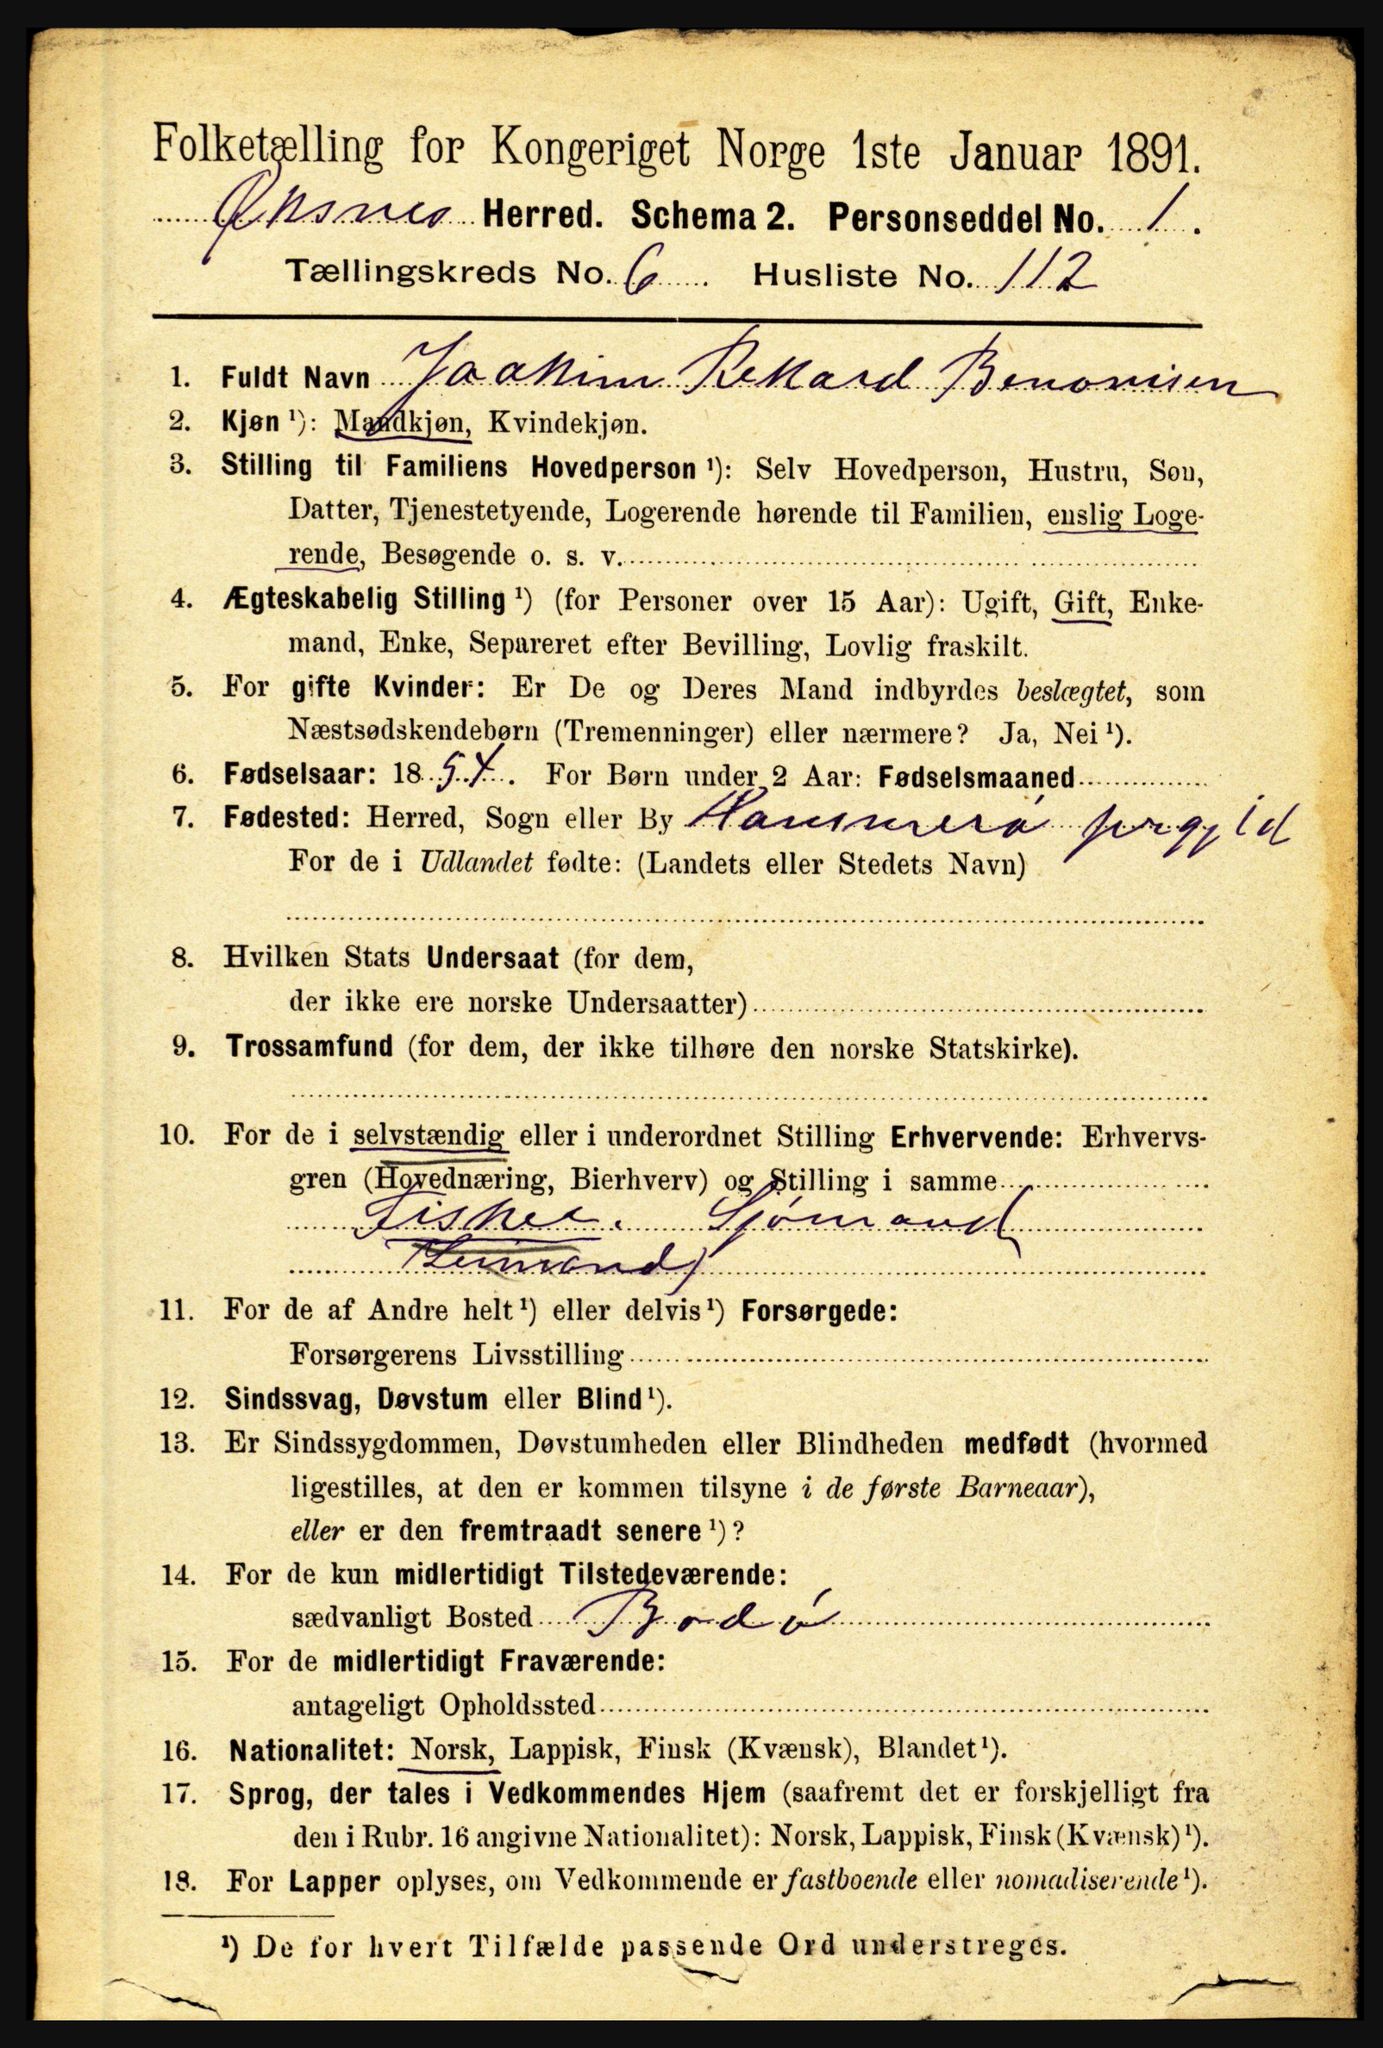 Folketælling for Kongeriget Norge 1ste Januar 1891.
Øksnes Herred. Schema 2. Personseddel No. 1.
Tællingskreds No. 6. Husliste No. 112
1. Fuldt Navn Joakim Rekard Benonisen
2. Kjøn ¹): Mandkjøn, Kvindekjøn.
3. Stilling til Familiens Hovedperson ¹): Selv Hovedperson, Hustru, Søn,
Datter, Tjenestetyende, Logerende hørende til Familien, enslig Loge-
rende, Besøgende o. s. v.
4. Ægteskabelig Stilling ¹) (for Personer over 15 Aar): Ugift, Gift, Enke-
mand, Enke, Separeret efter Bevilling, Lovlig fraskilt.
5. For gifte Kvinder: Er De og Deres Mand indbyrdes beslægtet, som
Næstsødskendebørn (Tremenninger) eller nærmere? Ja, Nei ¹).
6. Fødselsaar: 1854. For Børn under 2 Aar: Fødselsmaaned
7. Fødested: Herred, Sogn eller By Hammerø prgjld
For de i Udlandet fødte: (Landets eller Stedets Navn)
8. Hvilken Stats Undersaat (for dem,
der ikke ere norske Undersaatter)
9. Trossamfund (for dem, der ikke tilhøre den norske Statskirke).
10. For de i selvstændig eller i underordnet Stilling Erhvervende: Erhvervs-
gren (Hovednæring, Bierhverv) og Stilling i samme
Fisker. Sjømand
11. For de af Andre helt ¹) eller delvis ¹) Forsørgede:
Forsørgerens Livsstilling
12. Sindssvag, Døvstum eller Blind ¹).
13. Er Sindssygdommen, Døvstumheden eller Blindheden medfødt (hvormed
ligestilles, at den er kommen tilsyne i de første Barneaar),
eller er den fremtraadt senere ¹)?
14. For de kun midlertidigt Tilstedeværende:
sædvanligt Bosted Bodø
15. For de midlertidigt Fraværende:
antageligt Opholdssted
16. Nationalitet: Norsk, Lappisk, Finsk (Kvænsk), Blandet ¹).
17. Sprog, der tales i Vedkommendes Hjem (saafremt det er forskjelligt fra
den i Rubr. 16 angivne Nationalitet): Norsk, Lappisk, Finsk (Kvænsk) ¹).
18. For Lapper oplyses, om Vedkommende er fastboende eller nomadiserende ¹).
¹) De for hvert Tilfælde passende Ord understreges.